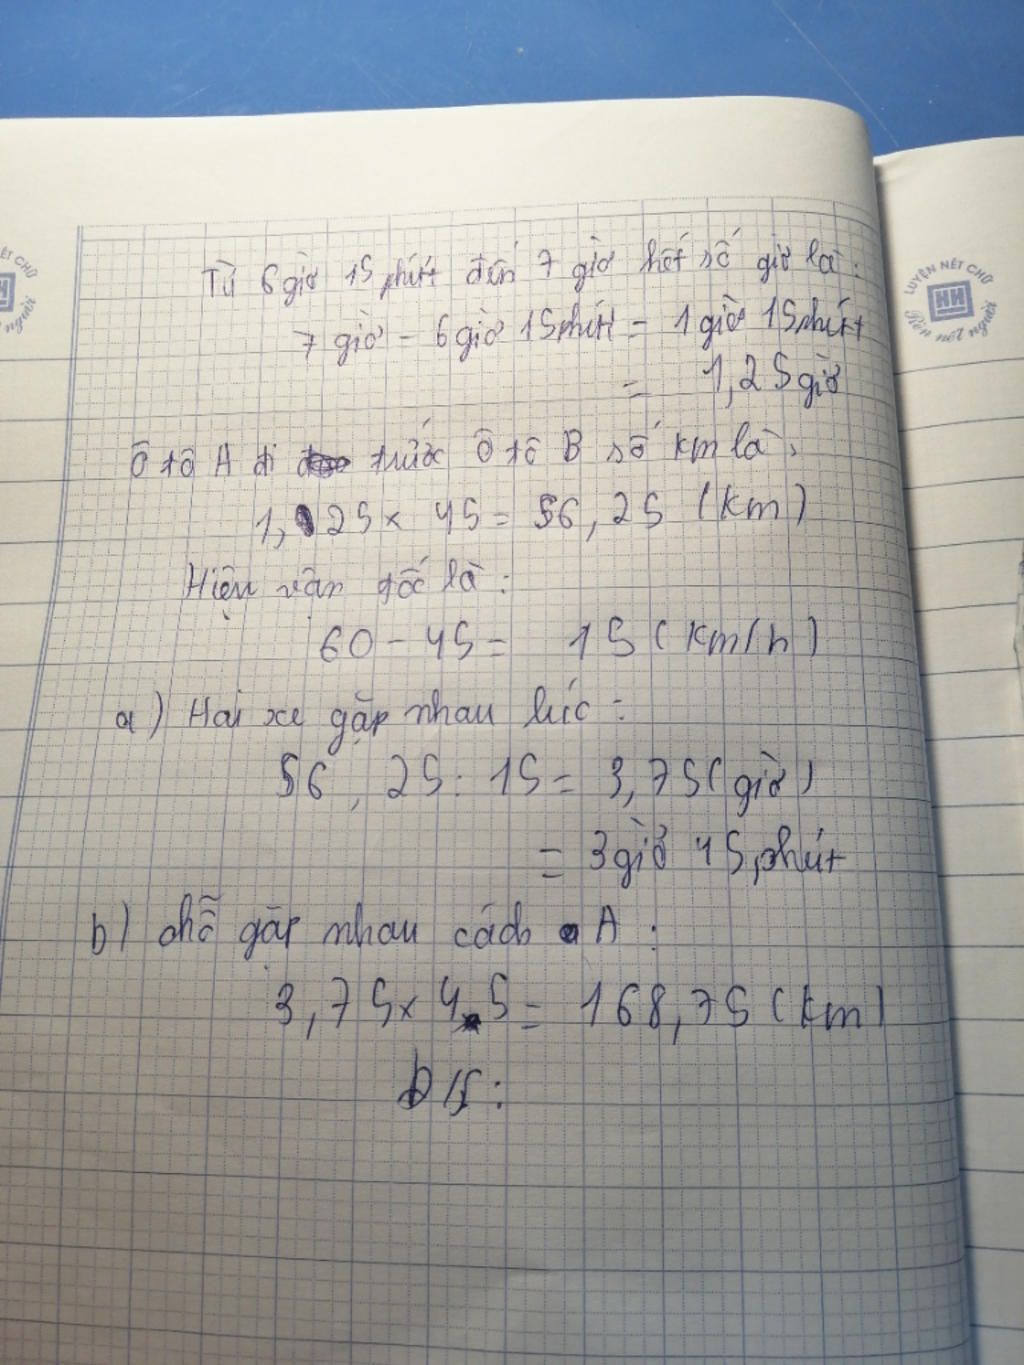 Từ 6 giờ 15 phút đến 7 giờ hết số giờ là:
7 giờ - 6 giờ 15 phút = 1 giờ 15 phút
= 1,25 giờ
Ô tô A đi trước Ô tô B số km là:
1,25 x 45 = 56,25 (km)
Hiệu vận tốc là:
60 - 45 = 15 (km/h)
a) Hai xe gặp nhau lúc:
56,25 : 15 = 3,75 (giờ)
= 3 giờ 45 phút
b) chỗ gặp nhau cách A:
3,75 x 45 = 168,75 (km)
Đ/S:
LUYỆN NÉT CHỮ
HH
Rèn nết người
ÉT CHỮ
HH
người